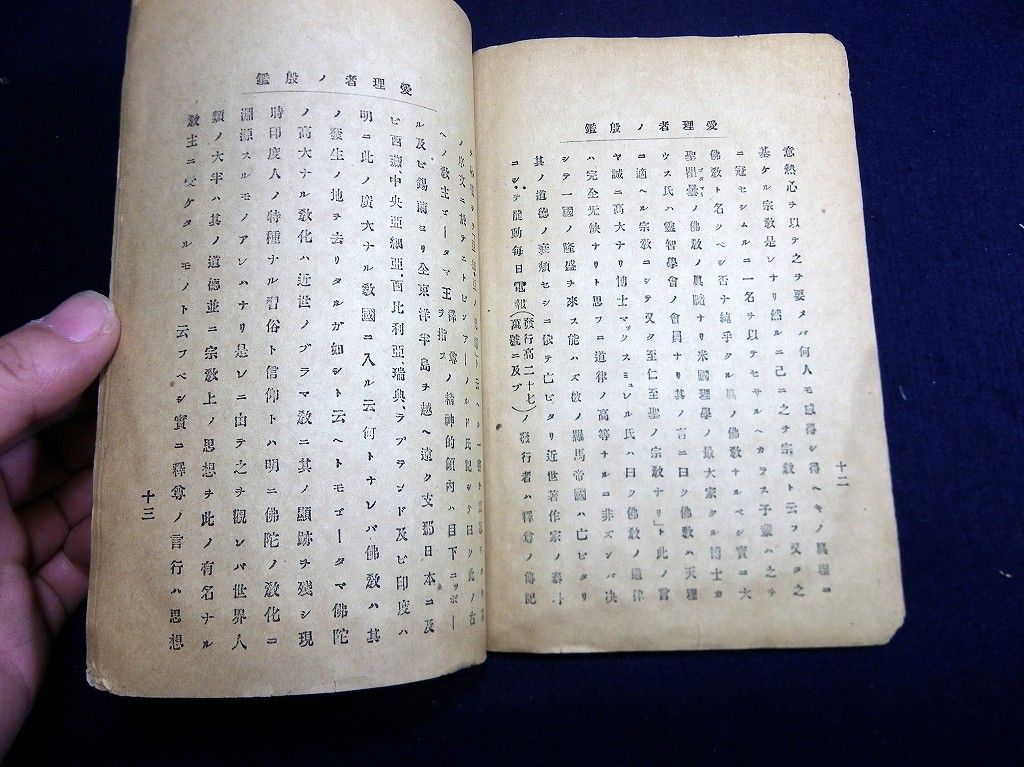 愛理者ノ殷鑑
意熱心チ以テ之チ要メバ何人モ感得シ得ヘキノ眞理ニ
基ケル宗敎是レナリ然ルニ己ニ之チ宗敎ト云フ又タ之
ニ冠セシムルニ一名チ以テセサルヘカラス予輩ハ之チ
佛敎ト名ツベシ否ナ純乎タル眞ノ佛敎ナルベシ實ニ大
聖瞿曇ノ佛敎ノ眞髓ナリ米國理學ノ最大家タル博士カ
ウス氏ハ靈智學會ノ會員ナリ其ノ言ニ曰ク佛敎ハ天理
ニ適ヘル宗敎ニシテ又タ至仁至聖ノ宗敎ナリ」ト此ノ言
ヤ誠ニ高大ナリ博士マックスミュレル氏ハ曰ク佛敎ノ道律
ハ完全无欽ナリト思フニ道律ノ高等ナルニ非ズンバ决
シテ一國ノ隆盛チ來ス能ハズ彼ノ羅馬帝國ハ亡ビタリ
其ノ道德ノ衰頽セシニ依テ亡ビタリ近世著作家ノ泰斗
ニシテ龍動每日電報(發行高二十七萬號ニ及ブ)ノ發行者ハ釋尊ノ傳記
十二
愛理者ノ殷鑑
ノ序文ニ於テエドビンアーノルド氏記シテ曰ク此ノ
ヘノ敎主ゴータマ王釋尊ノ精神的領內ハ目下ニッポー
ル及ビ錫蘭ヨリ全東洋半島チ越ヘ遠ク支那日本ニ及
ビ西藏、中央亞細亞、西比利亞、瑞典、ラプランド及ビ印度ハ
明ニ此ノ廣大ナル敎國ニ入ル云何トナレバ佛敎ハ其
ノ發生ノ地チ去リタルガ如シト云ヘトモゴータマ佛陀
ノ高大ナル敎化ハ近世ノブラマ敎ニ其ノ顯跡チ殘シ現
時印度人ノ特種ナル習俗ト信仰トハ明ニ佛陀ノ敎化ニ
淵源スルモノアレハナリ是レニ由テ之チ觀レバ世界人
類ノ大半ハ其ノ道德並ニ宗敎上ノ思想チ此ノ有名ナル
敎主ニ受ケタルモノト云フベシ實ニ釋尊ノ言行ハ思想
十三